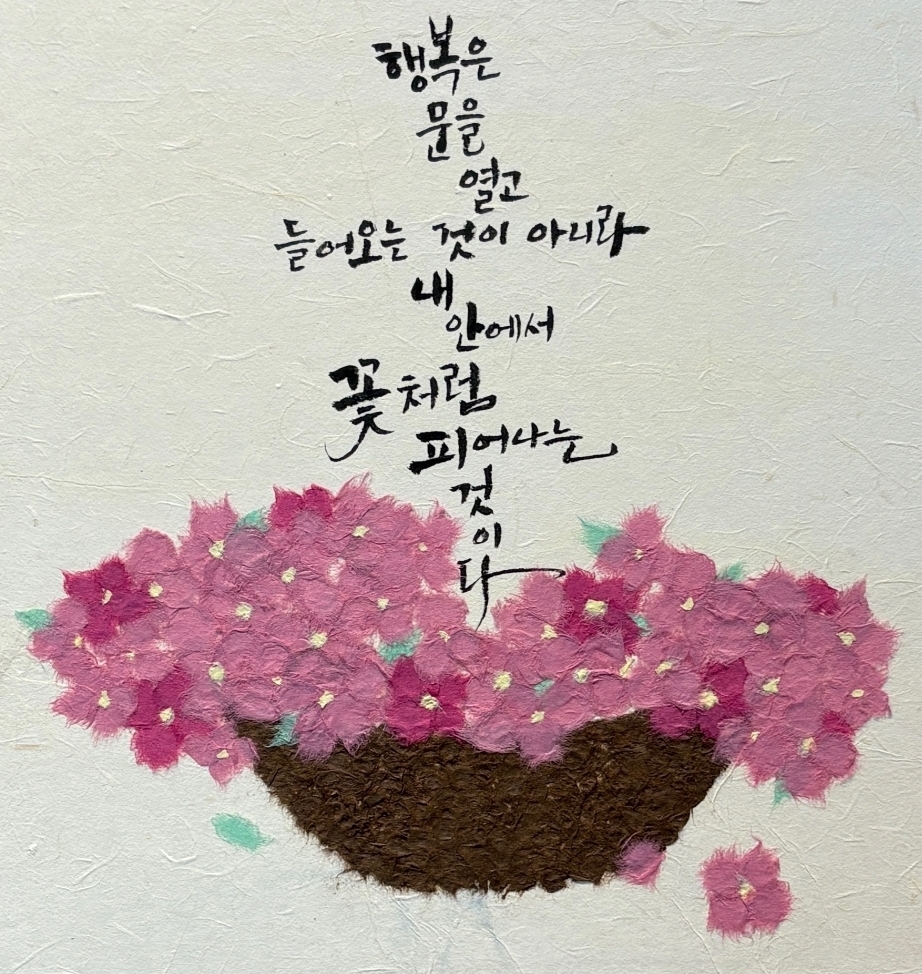 행복은
문을
열고
들어오는 것이 아니라
내
안에서
꽃처럼
피어나는
것
이
다